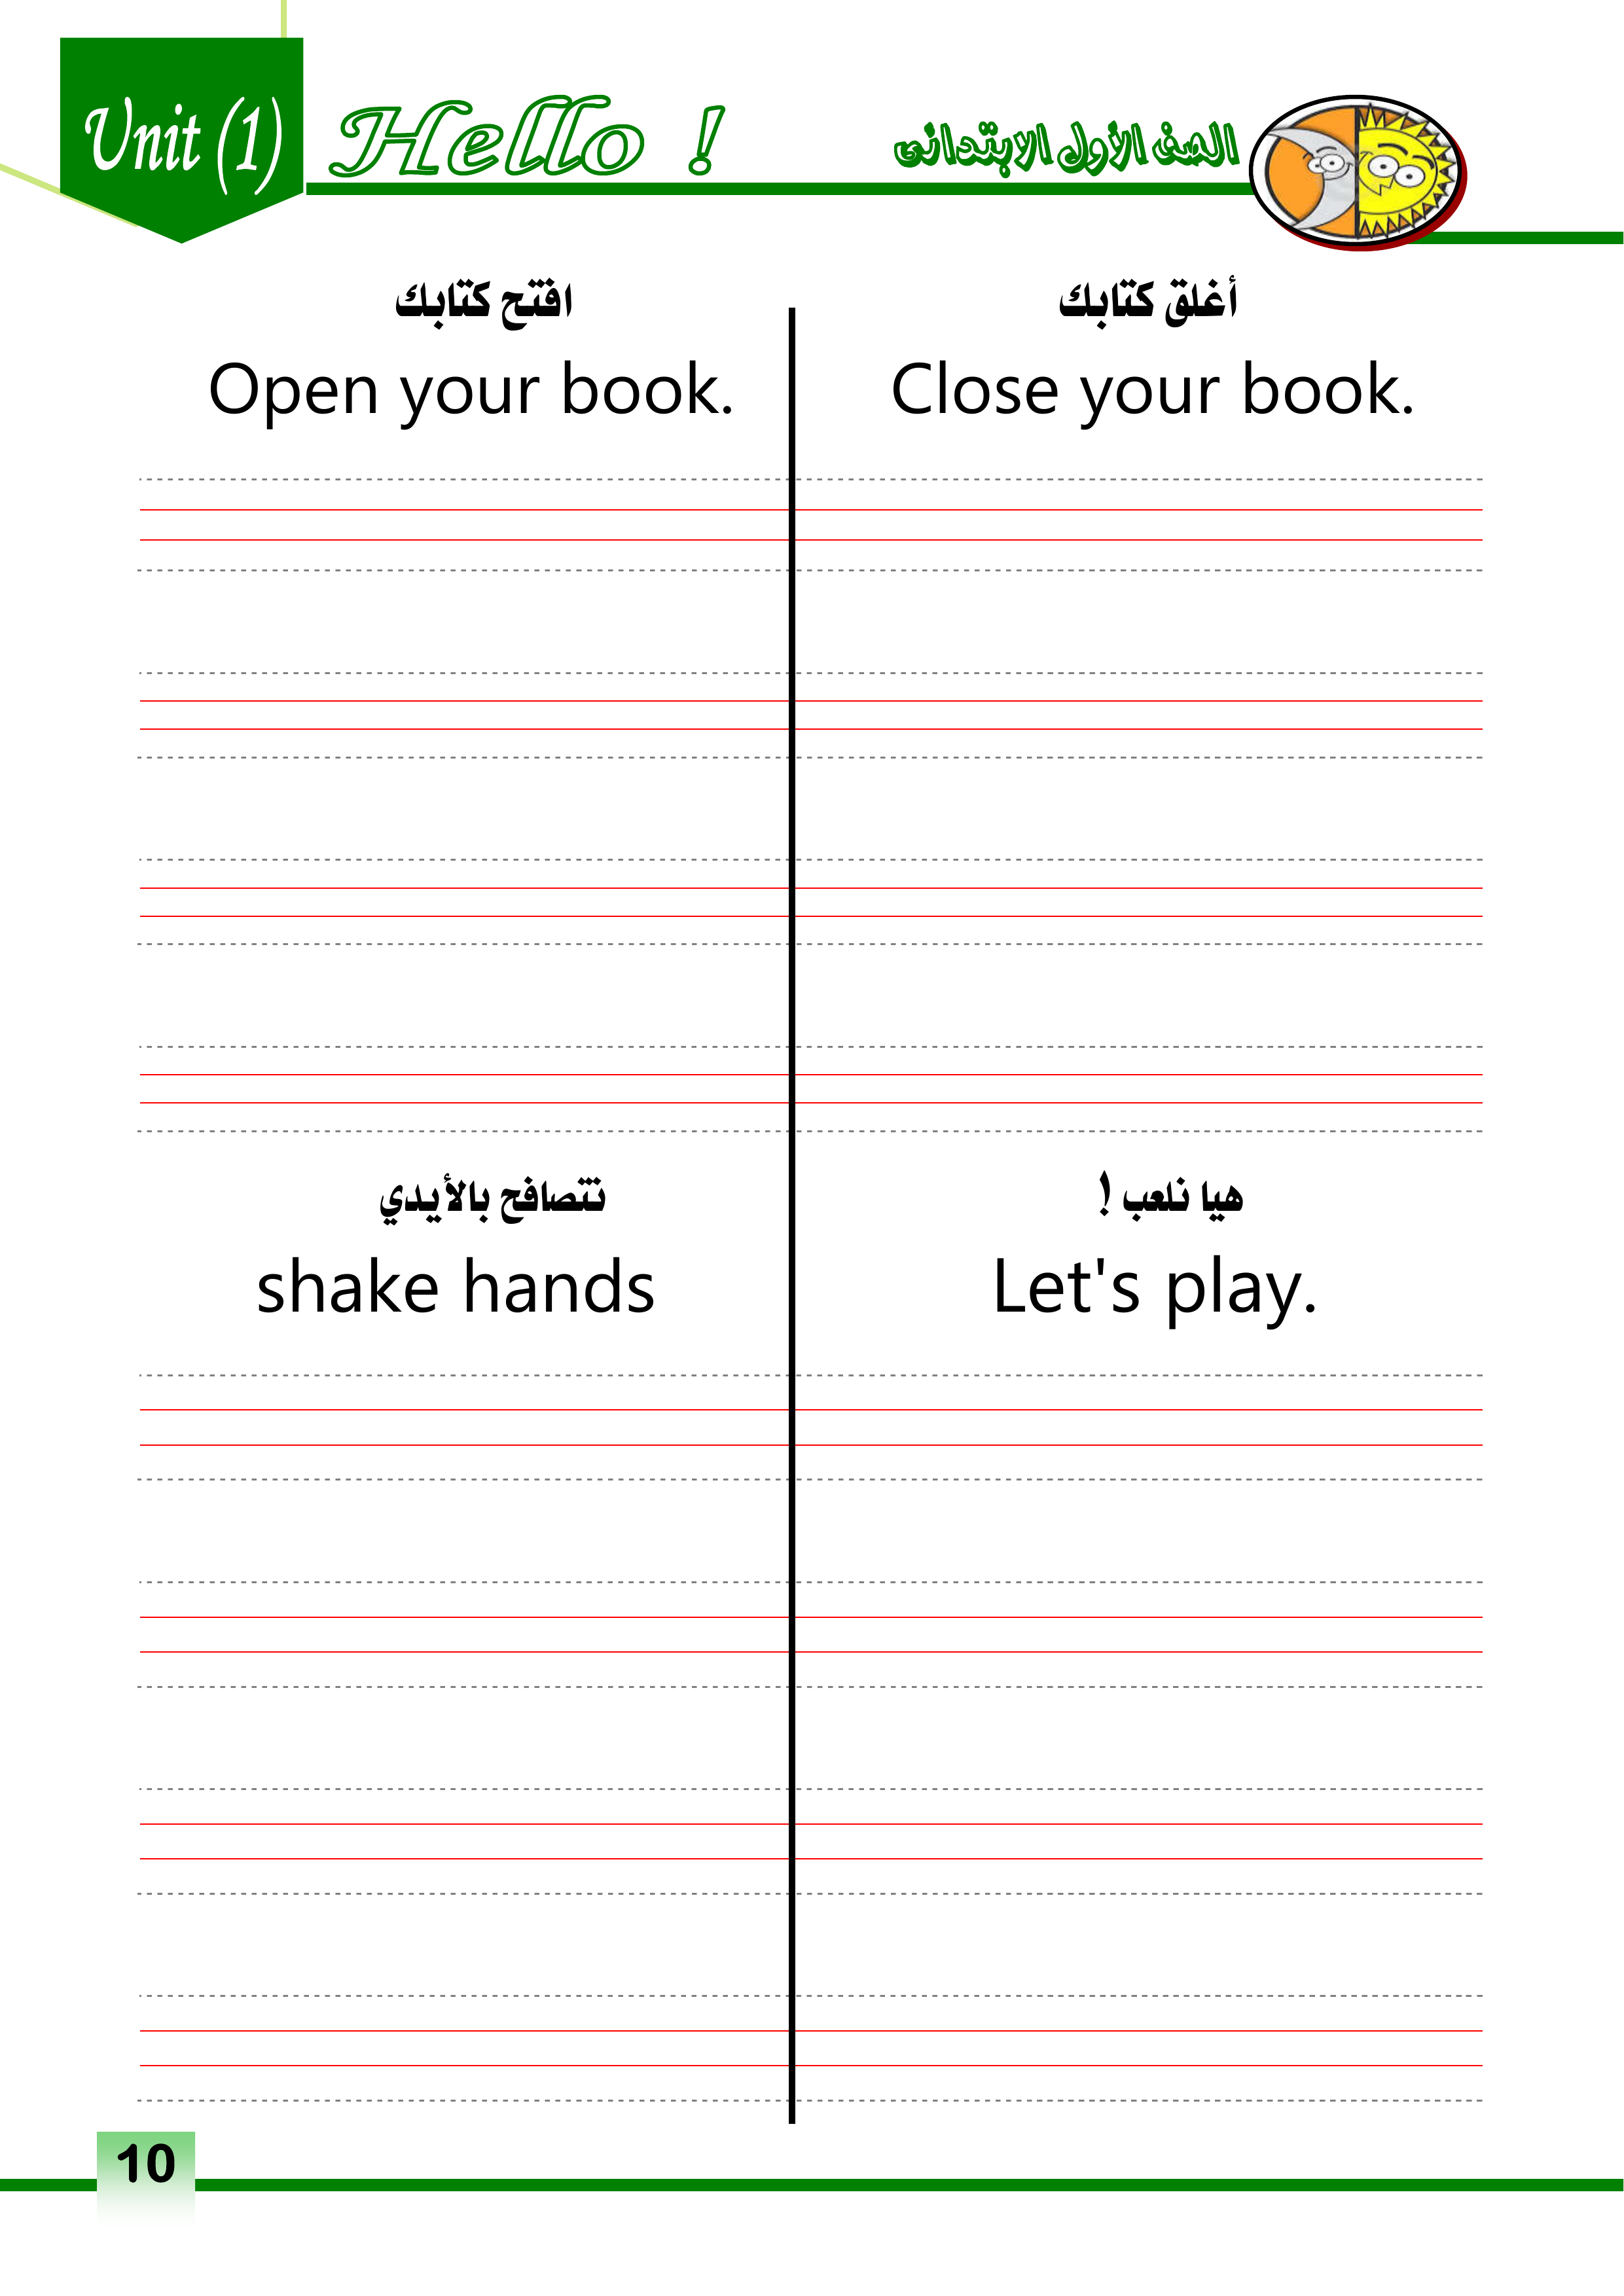 Unit (1)
Hello !
الصف الأول الابتدائى
افتح كتابك
Open your book.
أغلق كتابك
Close your book.
نتصافح بالأيدي
shake hands
هيا نلعب !
Let's play.
10